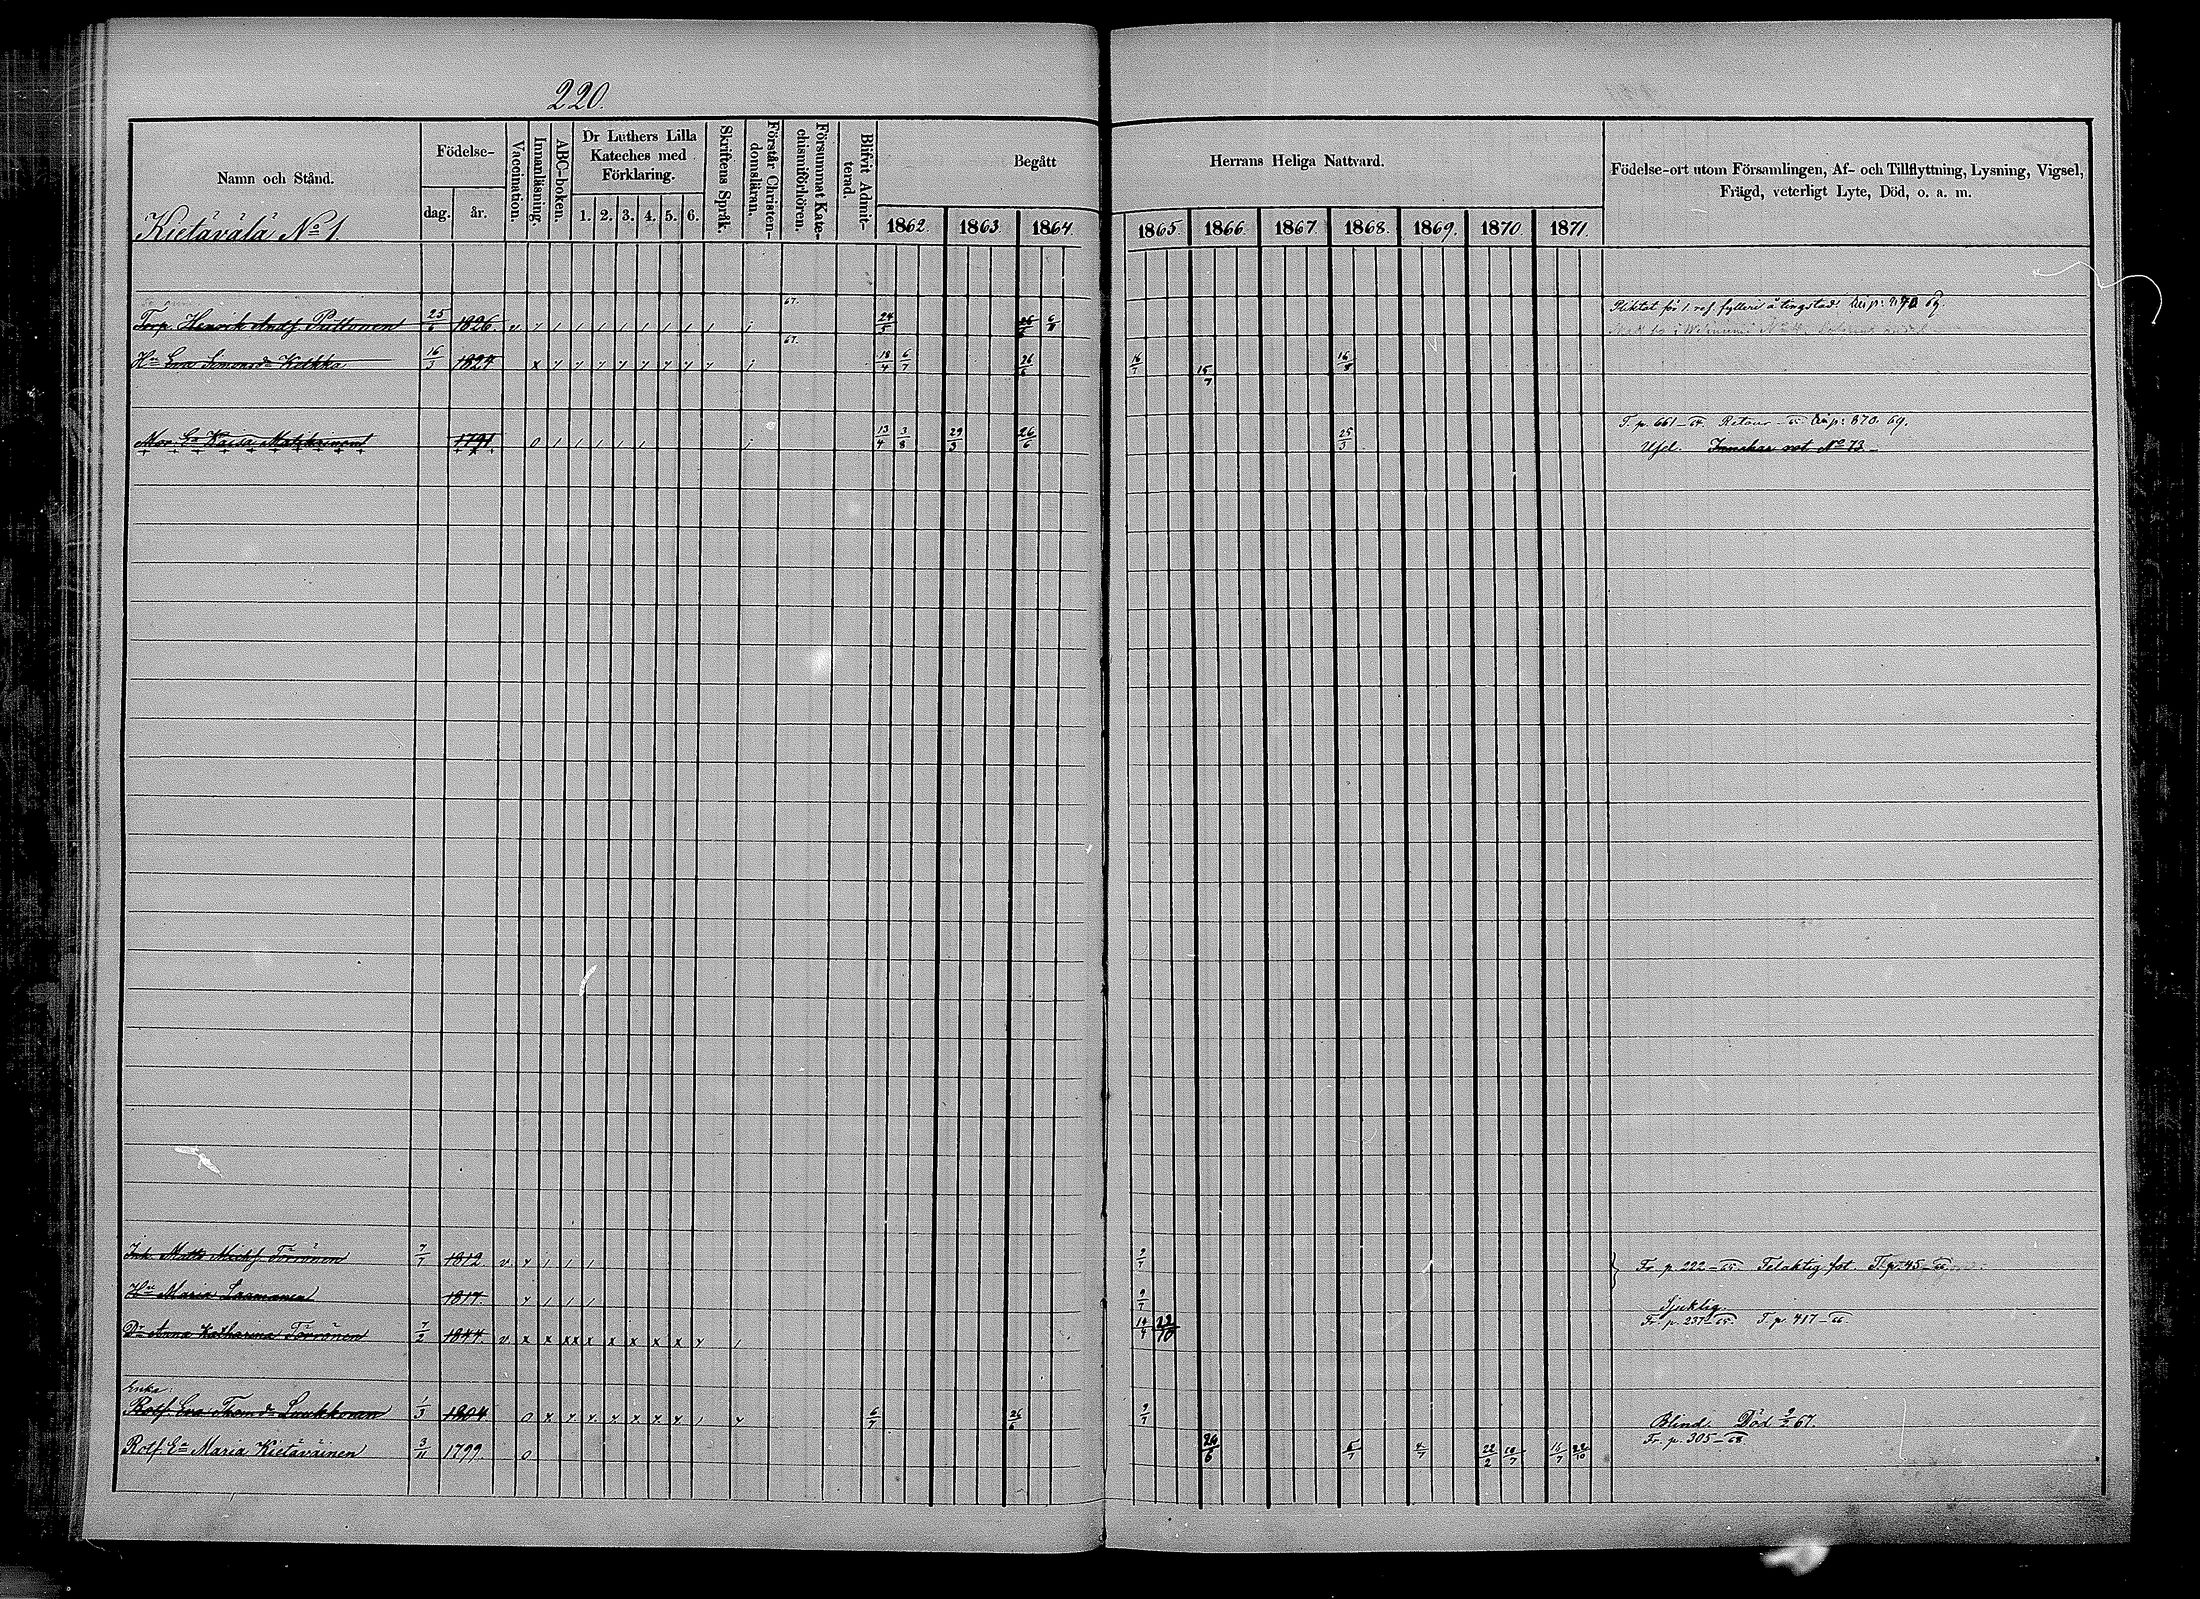 220.
Namn och Stånd.
Födelse-
dag.
år.
Vaccination.
Innanläsning.
ABC-boken.
Dr Luthers Lilla
Kateches med
Förklaring.
1. 2. 3. 4. 5. 6.
Skriftens Språk.
Förstår Christen-
domsläran.
Försummat Kate-
chismiförhören.
Blifvit Admit-
terad.
Begått
Herrans Heliga Nattvard.
1862. 1863. 1864 1865. 1866. 1867 1868. 1869. 1870. 1871.
Födelse-ort utom Församlingen, Af- och Tillflyttning, Lysning, Vigsel,
Frägd, veterligt Lyte, Död, o. a. m.
Kietävälä No 1.
67.
Torp. Henrik Andf. Puttonen 25/6 1826. v 24/5 6/8 Pliktat för 1. res. fylleri å tingstad.
67.
Hu Eva Simonsdr Kolkka 16/3 1824 18/4 6/7 26/6 16/7 15/7 16/8
T. p. 661-64. Retour -65
Mor. Ea Kaisa Matikainen 1791 0 13/4 3/8 29/3 26/6 25/3 Usel. No 73.
Inh. Matts Michf. Törrönen 7/7 1812 v 9/7 Fr p. 222-65. T. p. 45-66
Hu Maria Laamanen 1817. 9/7
Sjuklig.
Dr Anna Katharina Törrönen 7/2 1844 v x x xx x x x x x 14/4 22/10 Fr. p. 237-65. T. p. 417-66
Enka
Rotf. Eva Thom dr Laukkonen 1/3 1804 0 6/7 26/6 9/7 Blind. Död 9/2 67.
Rotf. Ea Maria Kietäväinen 3/11 1799. 0 24/6 5/7 4/7 22/2 10/7 16/7 22/10 Fr. p. 305-68.